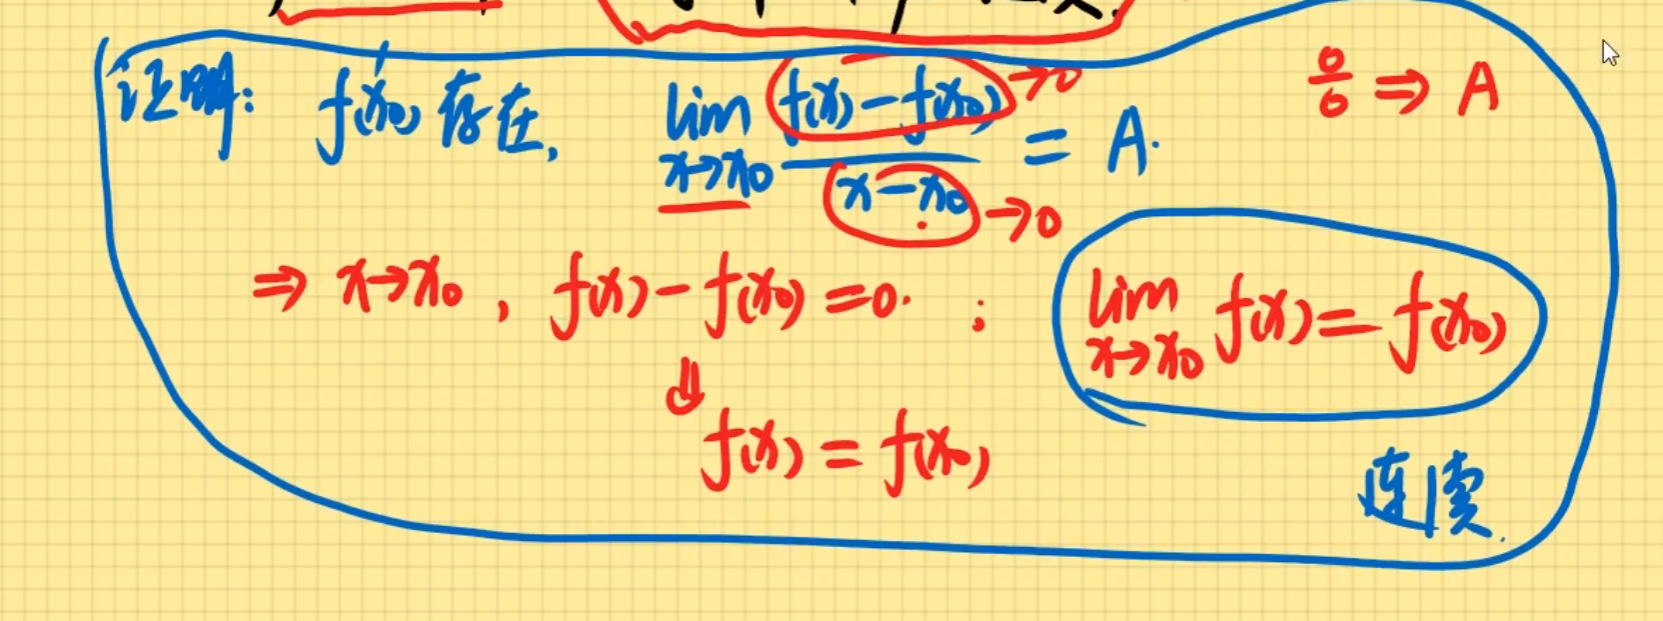 证明: f'(x₀) 存在, lim x→x₀ (f(x)-f(x₀))/(x-x₀) = A. →0 →0 0/0 ⇒ A
⇒ x→x₀, f(x)-f(x₀)=0. ; lim x→x₀ f(x)=f(x₀)
⇓
f(x)=f(x₀)
连续.